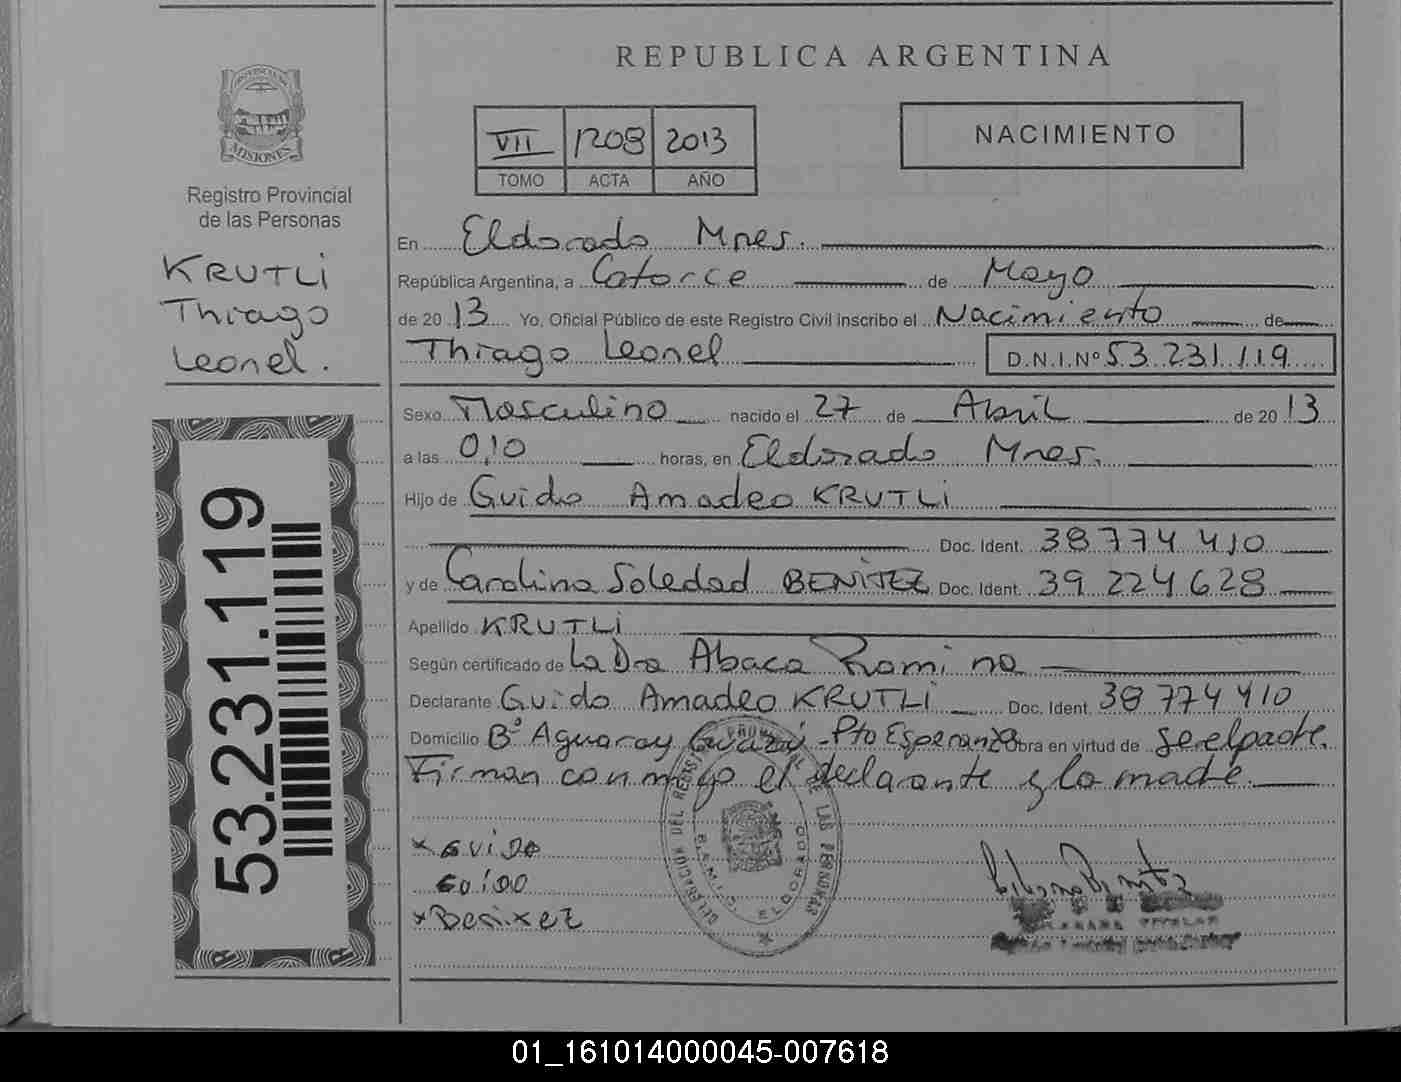 REPUBLICA ARGENTINA
PROVINCIA DE
MISIONES
Registro Provincial
de las Personas
VII 1208 2013
TOMO ACTA AÑO
NACIMIENTO
KRUTLI
Thiago
Leonel.
En Eldorado Mnes.
República Argentina, a Catorce de Mayo
de 2013 Yo, Oficial Público de este Registro Civil inscribo el Nacimiento de
Thiago Leonel D.N.I.Nº 53.231.119
Sexo Masculino nacido el 27 de Abril de 2013
a las 0,10 horas, en Eldorado Mnes.
Hijo de Guido Amadeo KRUTLI
Doc. Ident. 38 774 410
y de Carolina Soledad BENITEZ Doc. Ident. 39 224 628
Apellido KRUTLI
Según certificado de La Dra Abaca Romina
Declarante Guido Amadeo KRUTLI Doc. Ident. 38 774 410
Domicilio Bº Aguaray Guazú - Pto Esperanza Obra en virtud de ser el padre.
Firman conmigo el declarante y la madre.
53.231.119
x GUIDO
GUIDO
x Benitez
DELEGACION DEL REGISTRO PROVINCIAL DE LAS PERSONAS
ELDORADO
TITULAR
01_161014000045-007618